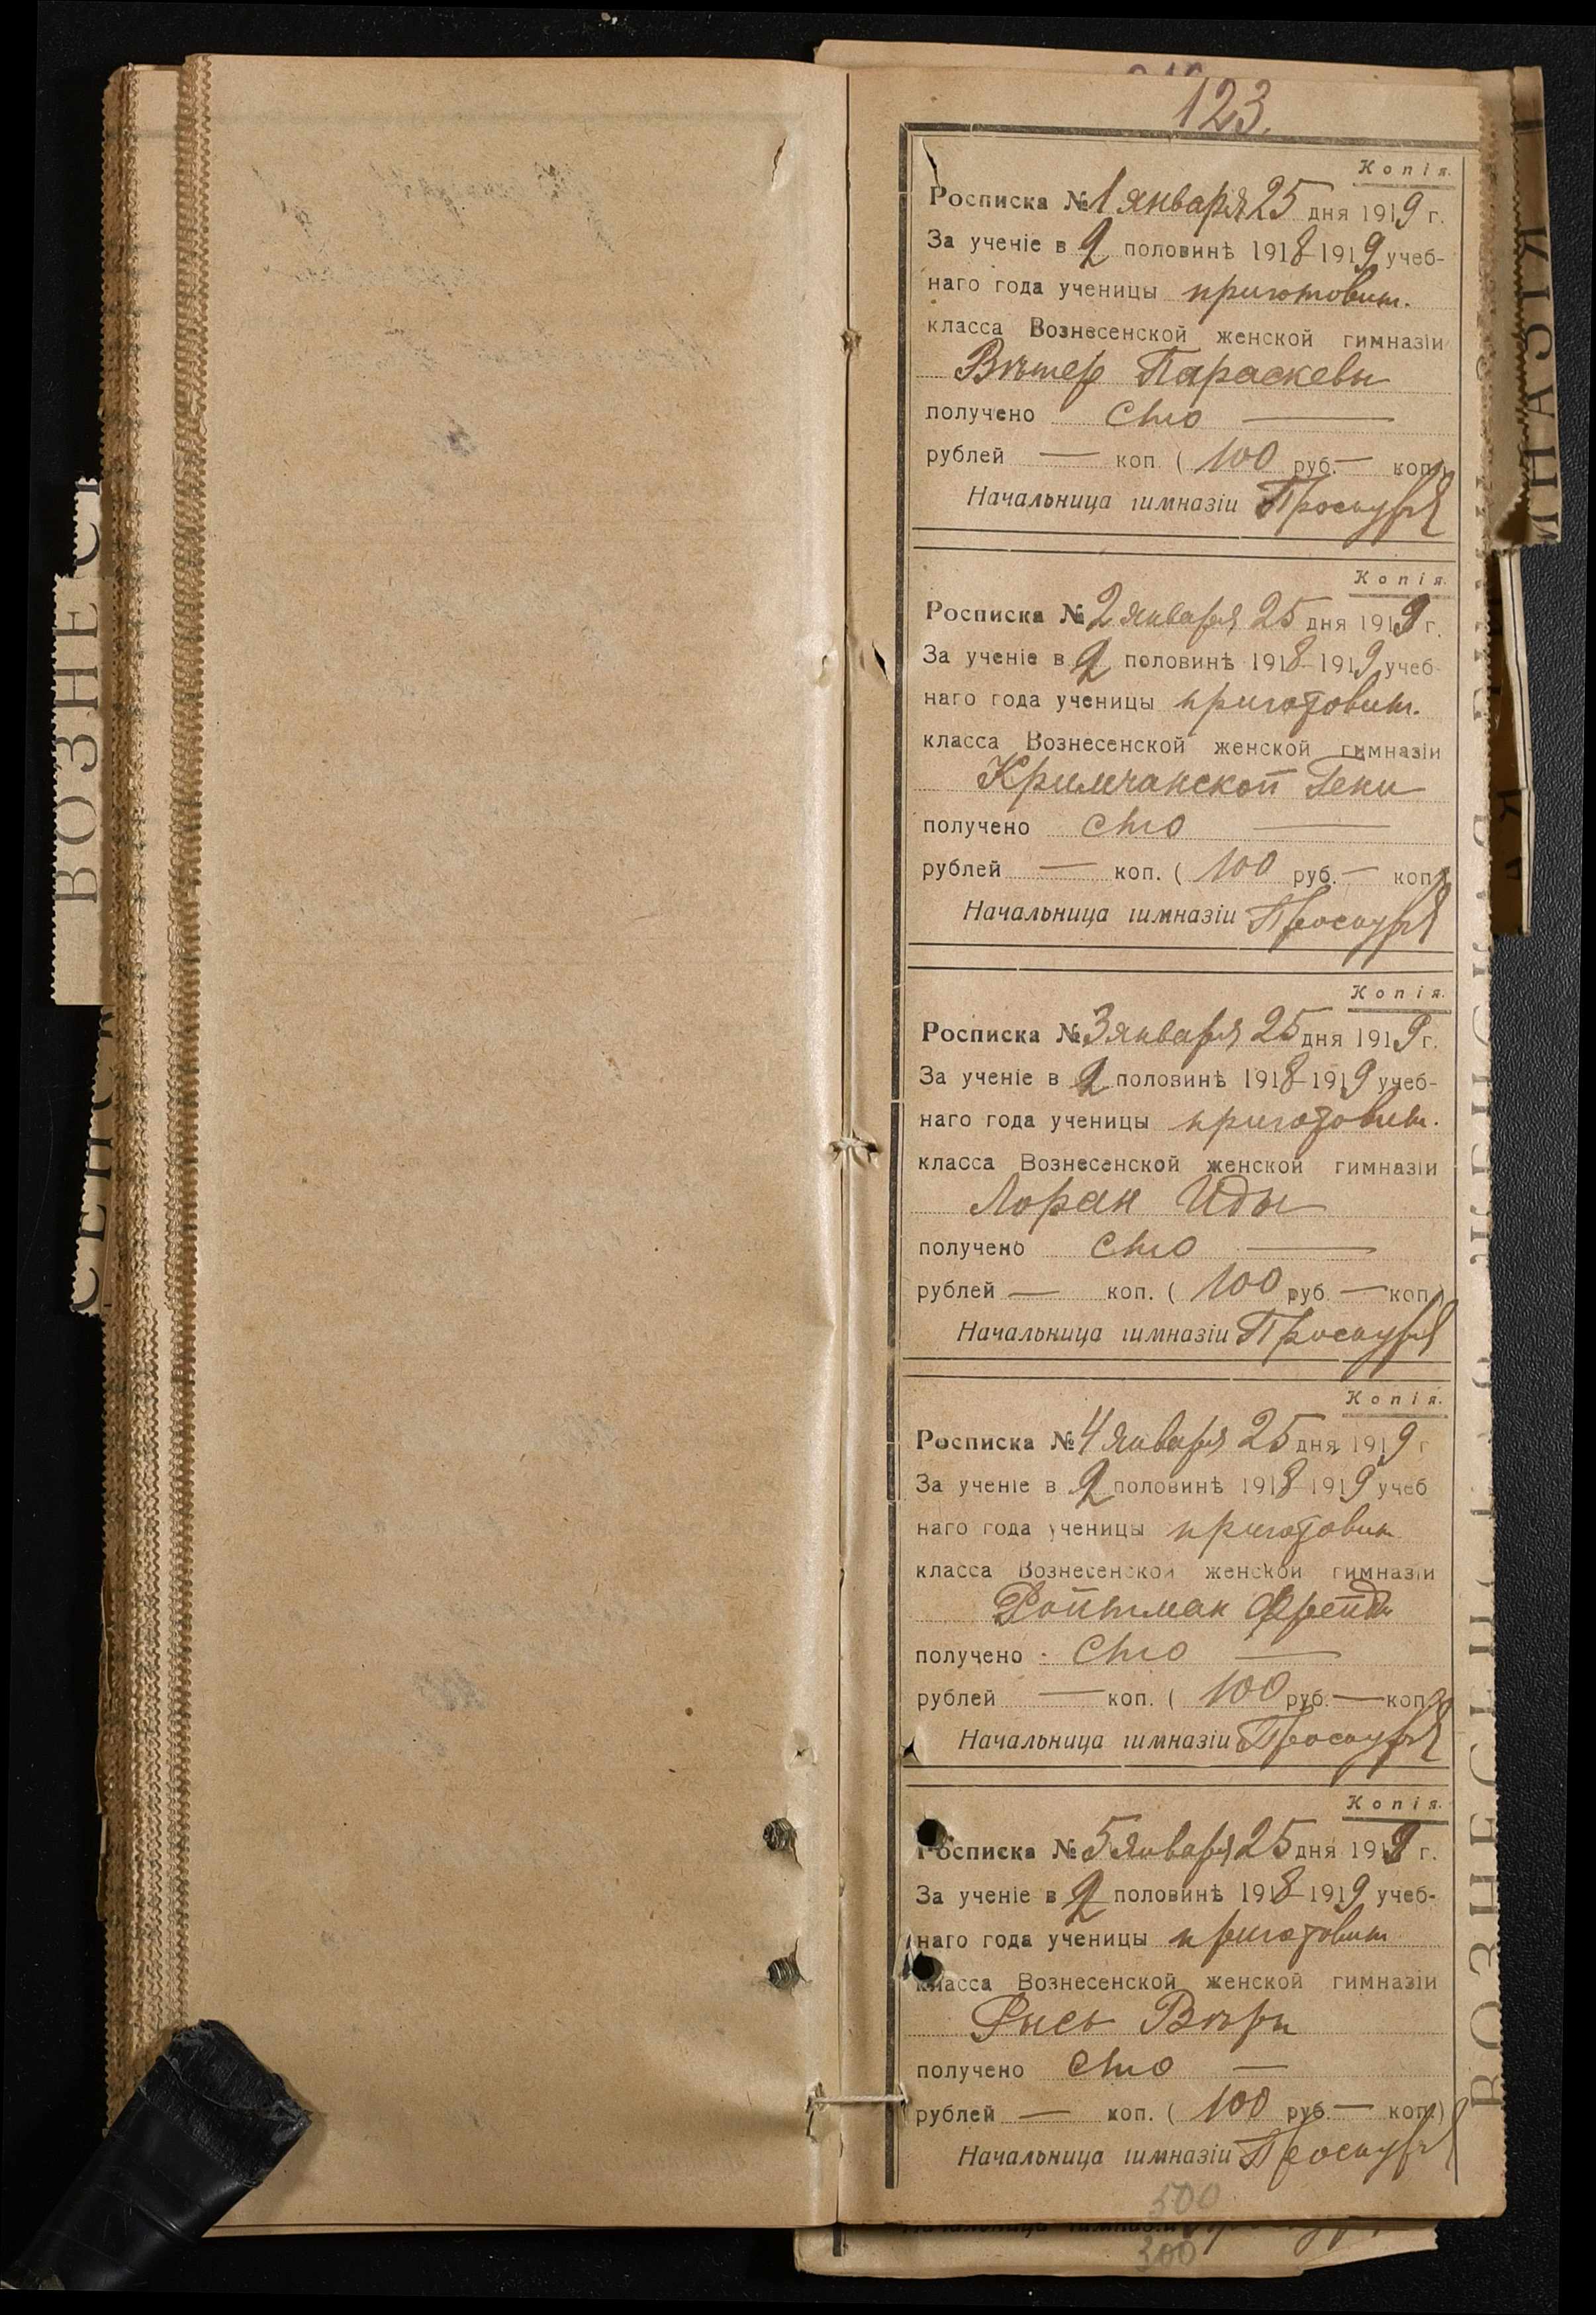 123.
Копія.
Росписка № 1 января 25 дня 1919 г.
За ученіе в 2 половинѣ 1918-1919 учеб-
наго года ученицы приготовит.
класса Вознесенской женской гимназіи
Вѣтер Параскевы
получено сто —
рублей — коп. ( 100 руб. — коп.)
Начальница гимназіи
Копія.
Росписка № 2 января 25 дня 1919 г.
За ученіе в 2 половинѣ 1918-1919 учеб-
наго года ученицы приготовит.
класса Вознесенской женской гимназіи
Кримчанской Гени
получено сто —
рублей — коп. ( 100 руб. — коп.)
Начальница гимназіи
Копія.
Росписка № 3 января 25 дня 1919 г.
За ученіе в 2 половинѣ 1918-1919 учеб-
наго года ученицы приготовит.
класса Вознесенской женской гимназіи
Лоран Иды
получено сто —
рублей — коп. ( 100 руб. — коп.)
Начальница гимназіи
Копія.
Росписка № 4 января 25 дня 1919 г
За ученіе в 2 половинѣ 1918-1919 учеб
наго года ученицы приготовит
класса Вознесенской женской гимназіи
Ройтман Фрейды
получено сто —
рублей — коп. ( 100 руб. — коп.)
Начальница гимназіи
Копія.
Росписка № 5 января 25 дня 1919 г.
За ученіе в 2 половинѣ 1918-1919 учеб-
наго года ученицы приготовит
класса Вознесенской женской гимназіи
Рысь Вѣры
получено сто —
рублей — коп. ( 100 руб. — коп.)
Начальница гимназіи
500
300